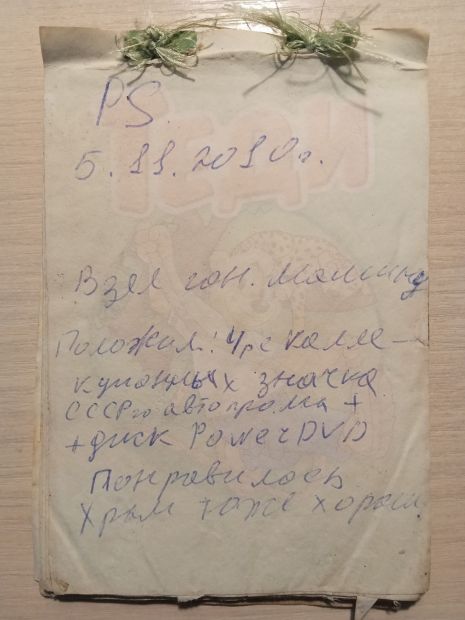 PS.
5.11.2010г.
Теди
Взял гон. машину
Положил: 4ре колле-
кционных значка
СССРго автопрома +
+ диск PowerDVD
Понравилось
Храм тоже хорош